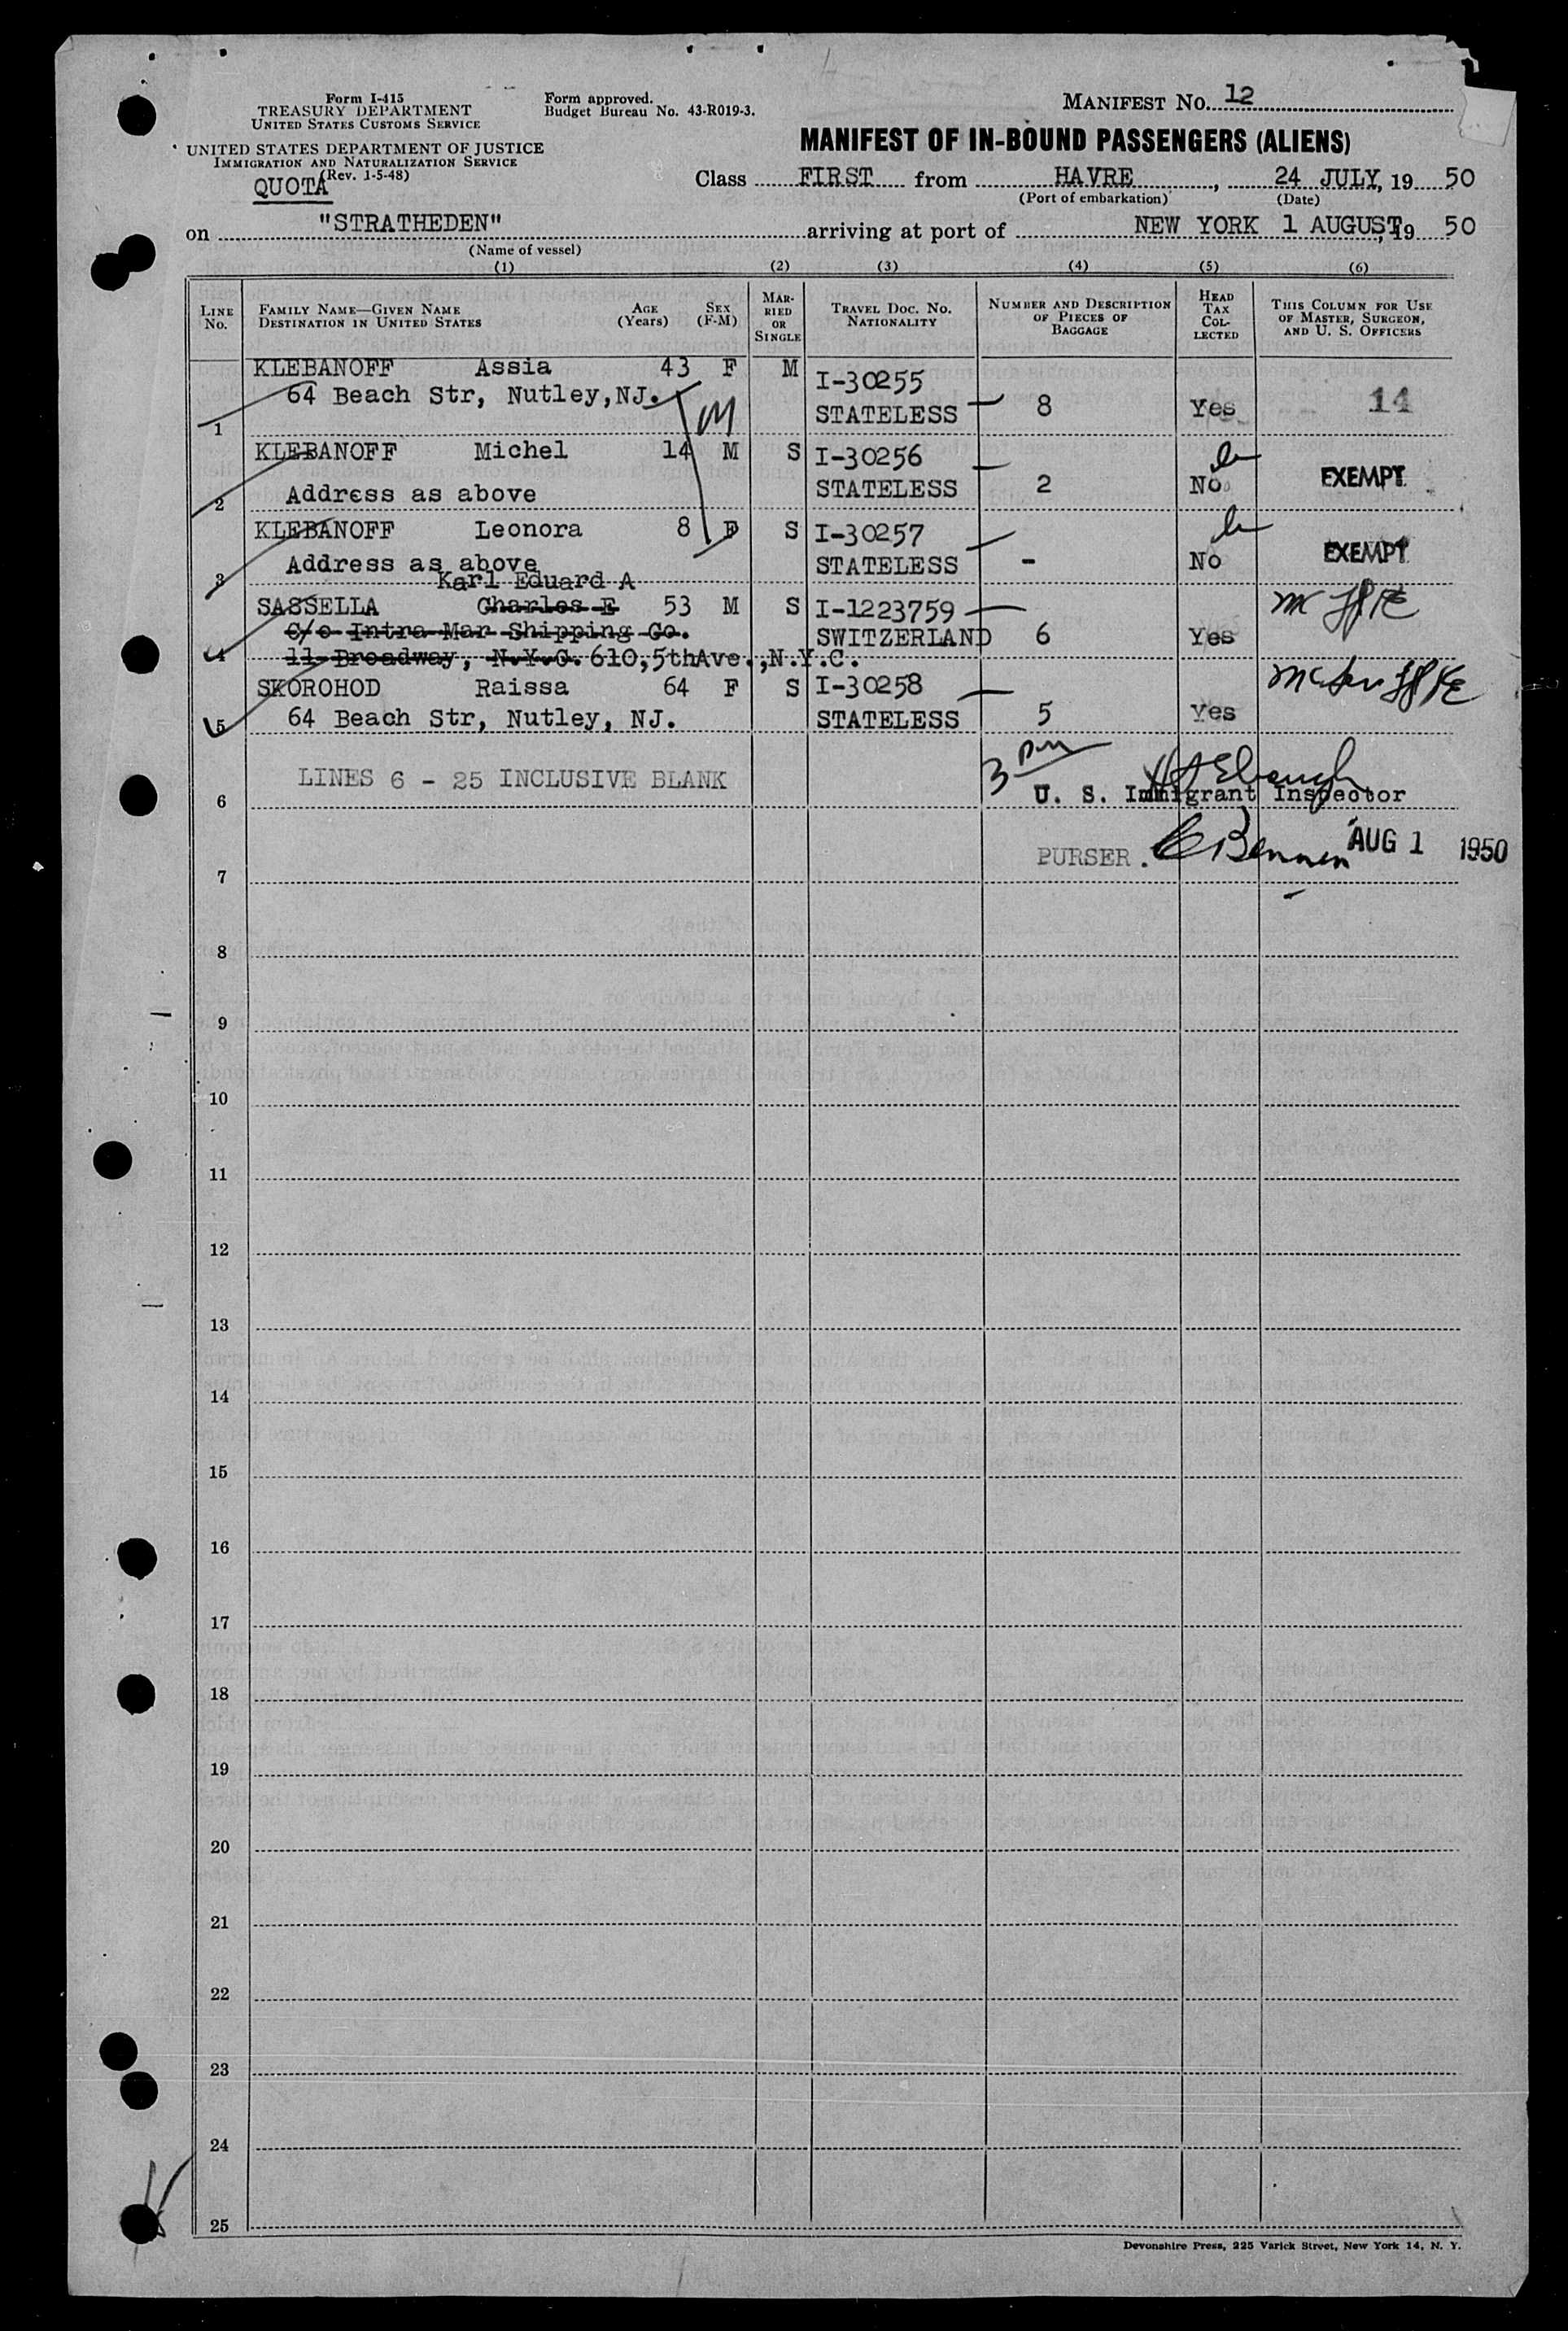 Form I-415
TREASURY DEPARTMENT
UNITED STATES CUSTOMS SERVICE
UNITED STATES DEPARTMENT OF JUSTICE
IMMIGRATION AND NATURALIZATION SERVICE
(Rev. 1-5-48)
QUOTA
Form approved.
Budget Bureau No. 43-R019-3.
MANIFEST No. 12
MANIFEST OF IN-BOUND PASSENGERS (ALIENS)
Class FIRST from HAVRE, 24 JULY, 19 50
(Port of embarkation) (Date)
on "STRATHEDEN" arriving at port of NEW YORK 1 AUGUST, 19 50
(Name of vessel)
(1) (2) (3) (4) (5) (6)
LINE No. FAMILY NAME—GIVEN NAME DESTINATION IN UNITED STATES AGE (Years) SEX (F-M) MARRIED OR SINGLE TRAVEL DOC. NO. NATIONALITY NUMBER AND DESCRIPTION OF PIECES OF BAGGAGE HEAD TAX COLLECTED THIS COLUMN FOR USE OF MASTER, SURGEON, AND U. S. OFFICERS
KLEBANOFF Assia 43 F M I-30255
64 Beach Str, Nutley, NJ. M
1 STATELESS 8 Yes 14
KLEBANOFF Michel 14 M S I-30256
2 Address as above STATELESS 2 No EXEMPT
KLEBANOFF Leonora 8 F S I-30257
3 Address as above STATELESS - No EXEMPT
Karl Eduard A
SASSELLA Charles E 53 M S I-1223759
C/o Intra Mar Shipping Co. SWITZERLAND 6 Yes
4 11 Broadway, N.Y.C. 610,5thAve.,N.Y.C.
SKOROHOD Raissa 64 F S I-30258
5 64 Beach Str, Nutley, NJ. STATELESS 5 Yes
LINES 6 - 25 INCLUSIVE BLANK
3 pm
6 U. S. Immigrant Inspector
PURSER. AUG 1 1950
7
8
9
10
11
12
13
14
15
16
17
18
19
20
21
22
23
24
25
Devonshire Press, 225 Varick Street, New York 14, N. Y.